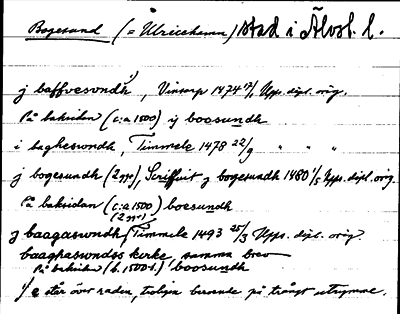 Bogesund (= Ulricehamn) stad i Älvsb. l.
j baffvesvndh 1), Vinsarp 1474 17/1 Upps. dipl. orig.
På baksidan (c:a 1500) ij boosundh
i bagheswndh, Timmele 1478 22/9 " " "
j bogesundh (2 ggr), Scriffuit j bogesundh 1480 1/5 Upps. dipl. orig.
På baksidan (c:a 1500) boesundh
(2 ggr)
j baagaswndh, Timmele 1493 25/3 Upps. dipl. orig.
baaghaswndss kerke, samma brev
På baksidan (b. 1500-t.) boosundh
1) e står över raden, troligen beroende på trångt utrymme.